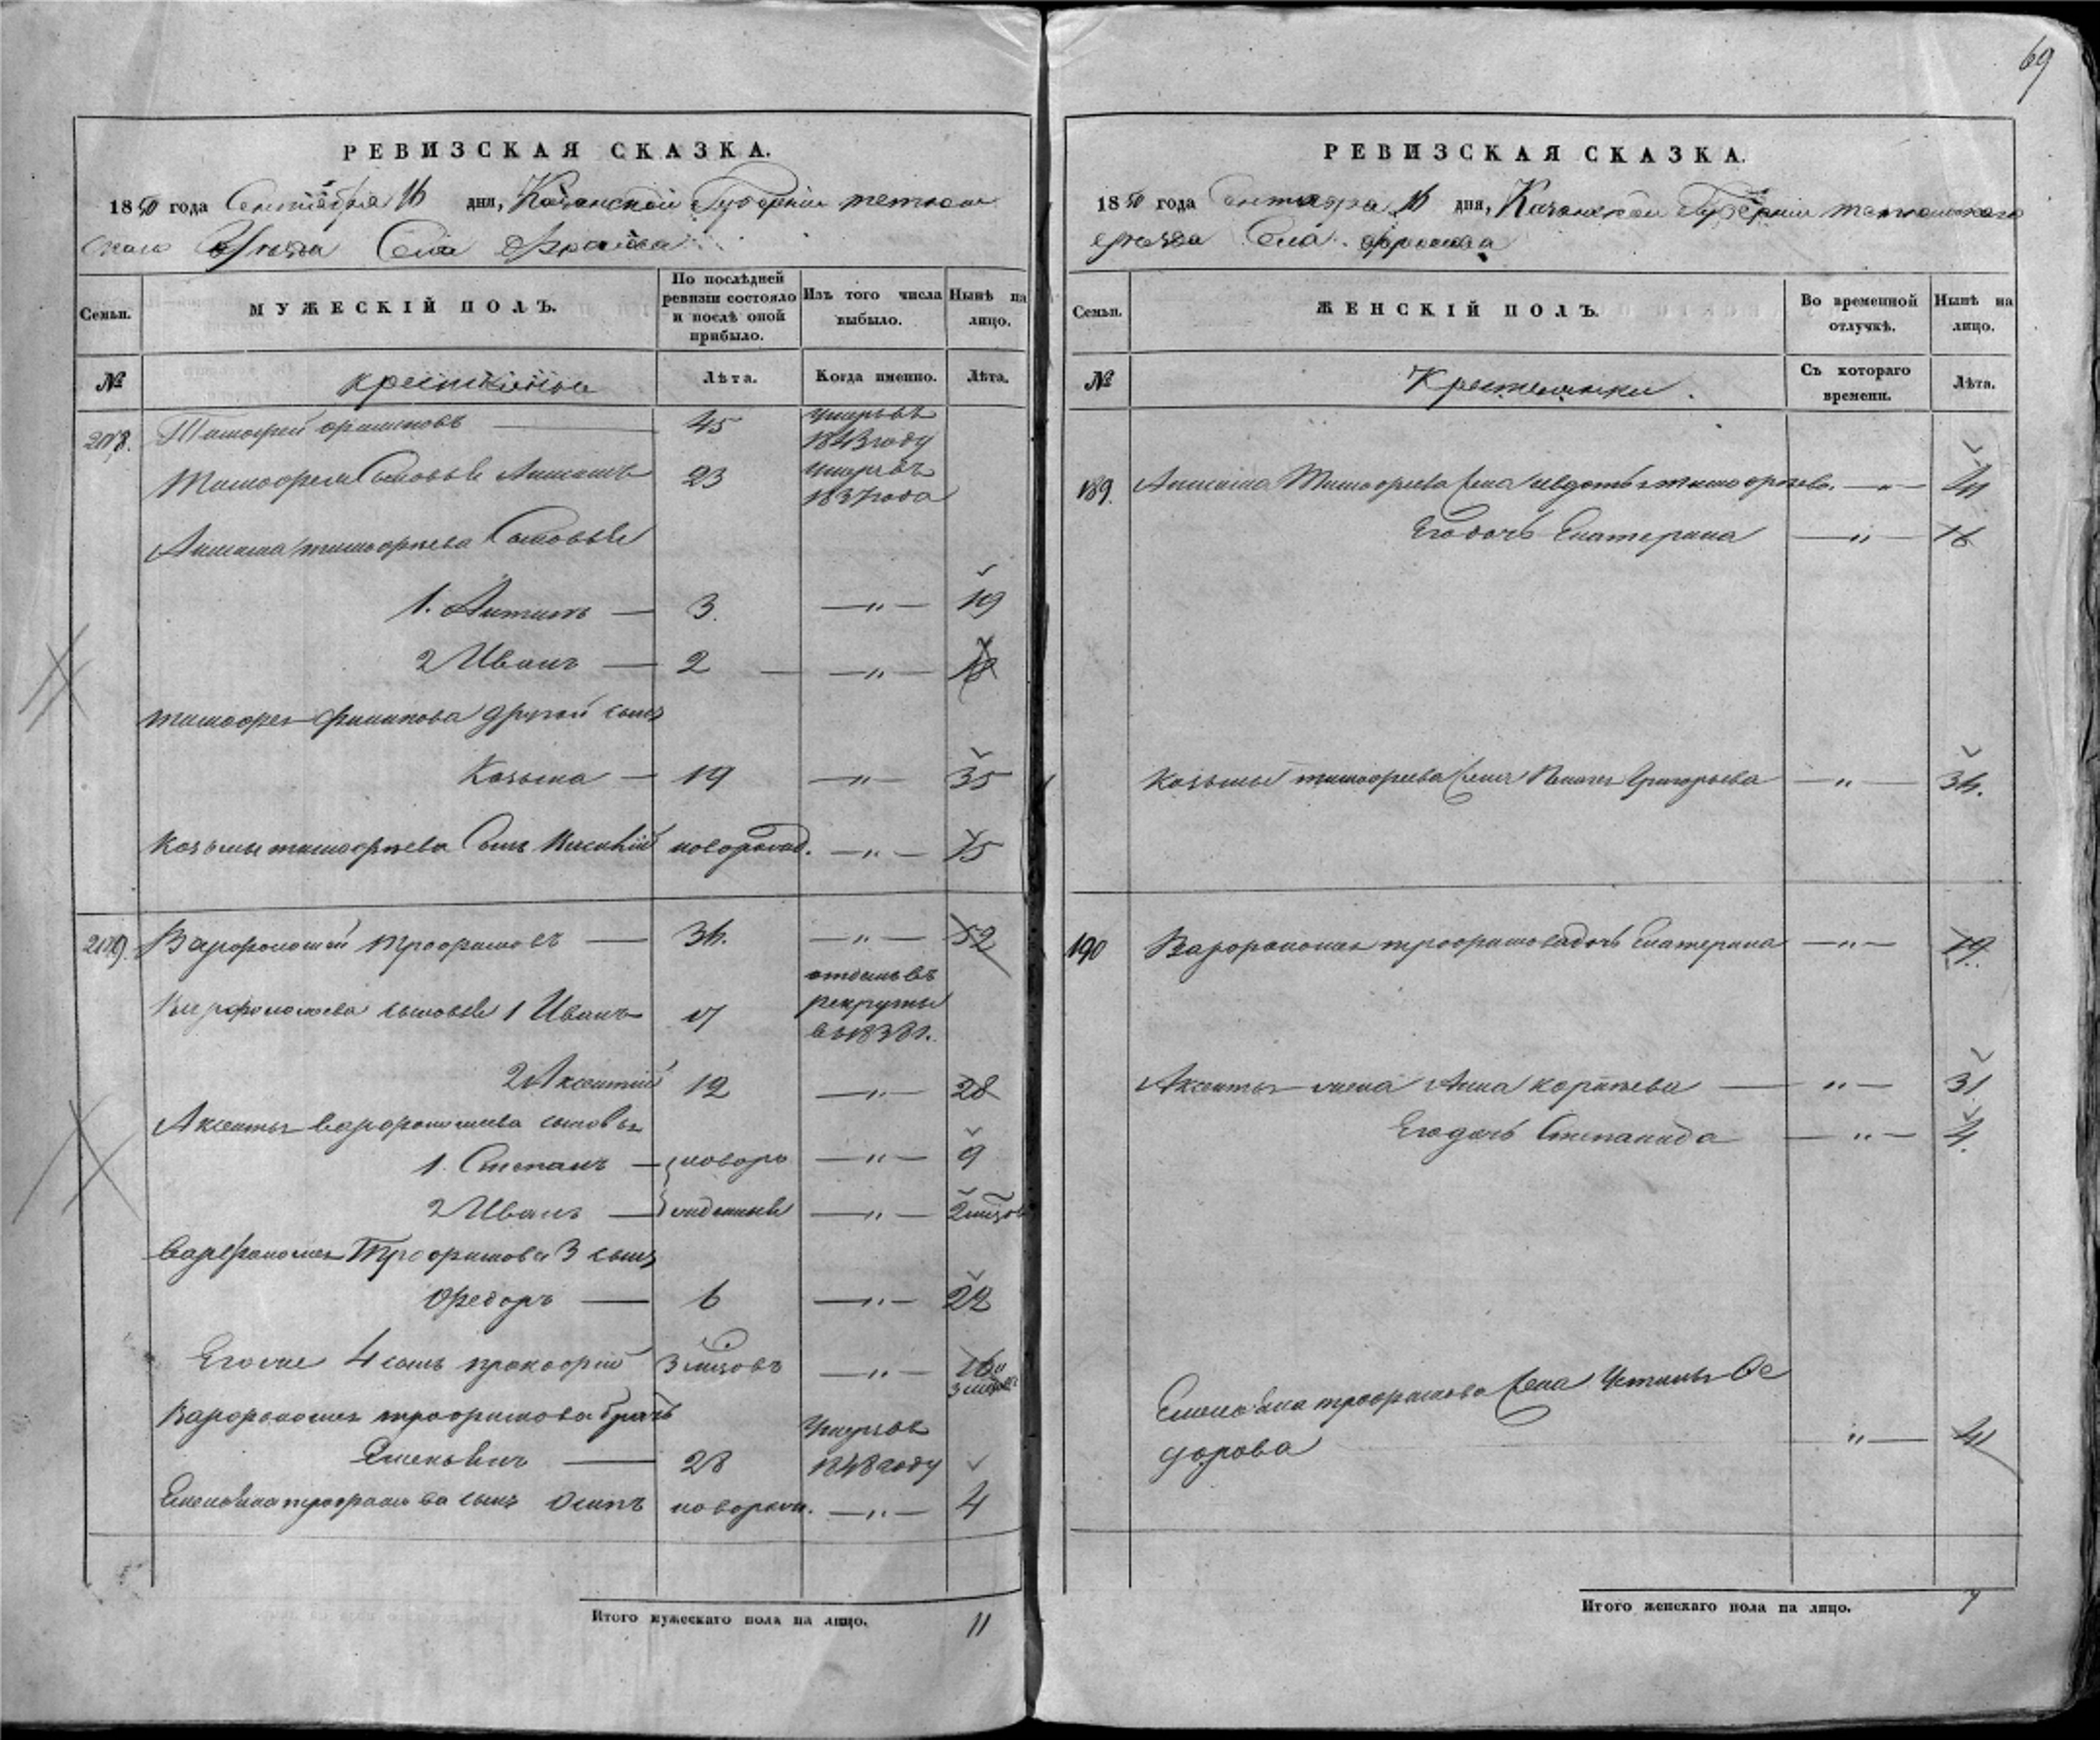 69
РЕВИЗСКАЯ СКАЗКА.
1850 года Сентября 16 дня, Казанской Губернии тетюш
скаго Уезда Села
Семьи.
МУЖЕСКІЙ ПОЛЪ.
По послѣдней ревизіи состояло и послѣ оной прибыло.
Изъ того числа выбыло.
Нынѣ на лицо.
№
крестьяне
Лѣта.
Когда именно.
Лѣта.
Тимофей 45 умеръ въ
1843 году
Тимофея Сыновья 23 умеръ въ
1837 года
Тимофеева Сыновья
1. Антипъ — 3. —〃— 19
2 Иванъ — 2 — —〃— 18
тимофея филипова другой сынъ
Козьма — 19 —〃— 35
Козьмы тимофеева Сынъ новорожд. —〃— 15
Варфоломей трофимовъ — 34. —〃— 52
Варфоломеева сыновья 1 Иванъ 17 отданъ въ
рекруты
2 Аксентий 12 —〃— 28
Аксентья варфоломеева сыновья
1. Степанъ — новоро —〃— 9
2 Иванъ — жденные —〃—
Варфоломея Трофимова 3 сынъ
Федоръ — 6 —〃— 22
Егоже 4 сынъ прокофий —〃— 16
Варфоломея трофимова братъ Умеръ въ
Емельянъ — 28 1848 году
Емельяна трофимова сынъ Осипъ новорож. —〃— 4
Итого мужескаго пола на лицо. 11
РЕВИЗСКАЯ СКАЗКА.
1850 года Сентября 16 дня, Казанской Губернии тетюшскаго
уезда Села
Семьи.
ЖЕНСКІЙ ПОЛЪ.
Во временной отлучкѣ.
Нынѣ на лицо.
№
Крестьянки.
Съ котораго времени.
Лѣта.
189. Тимофеева жена авдотья тимофеева. —〃—
Егодочь Екатерина —〃— 16
Козьмы тимофеева жена Григорьева —〃— 34.
190 Варфоломея трофимова дочь Екатерина —〃— 19.
Аксентья жена Анна —〃— 31
Егодочь Степанида —〃— 4.
Емельяна трофимова жена Устинья Фе
дорова 〃— 41
Итого женскаго пола на лицо. 7